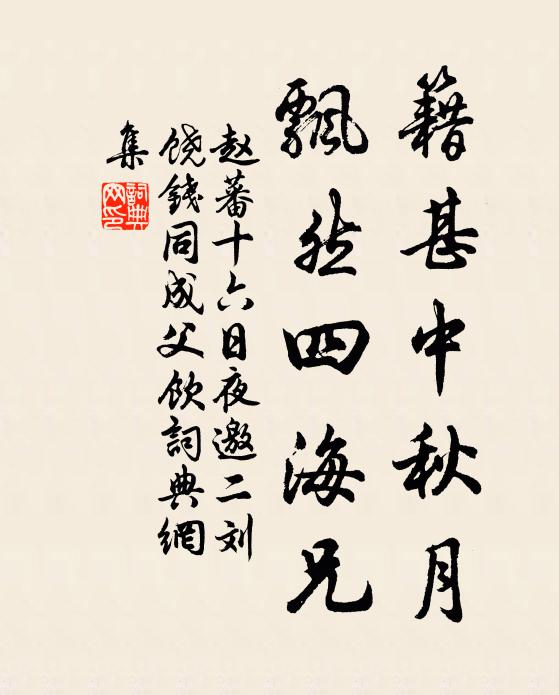 籍甚中秋月
飘然四海兄
赵蕃十六日夜邀二刘
饶钱同成父饮词典網
集
詞典
网印